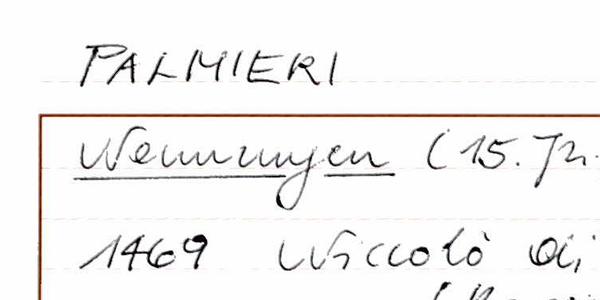 PALMIERI
Nennungen (15. Jh.
1469 Niccolò di